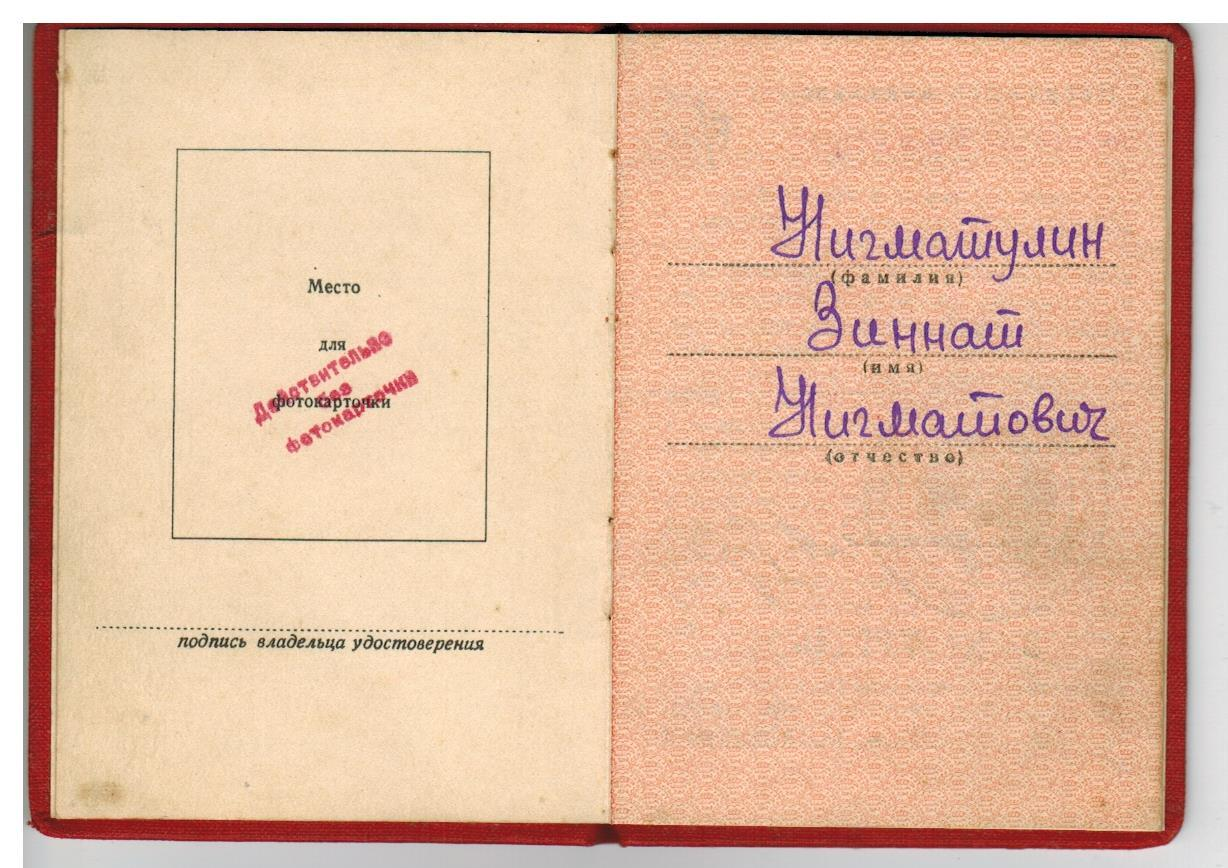 Место
для
фотокарточки
Действительно
без
фотокарточки
подпись владельца удостоверения
Нигматулин
(фамилия)
Зиннат
(имя)
Нигматович
(отчество)